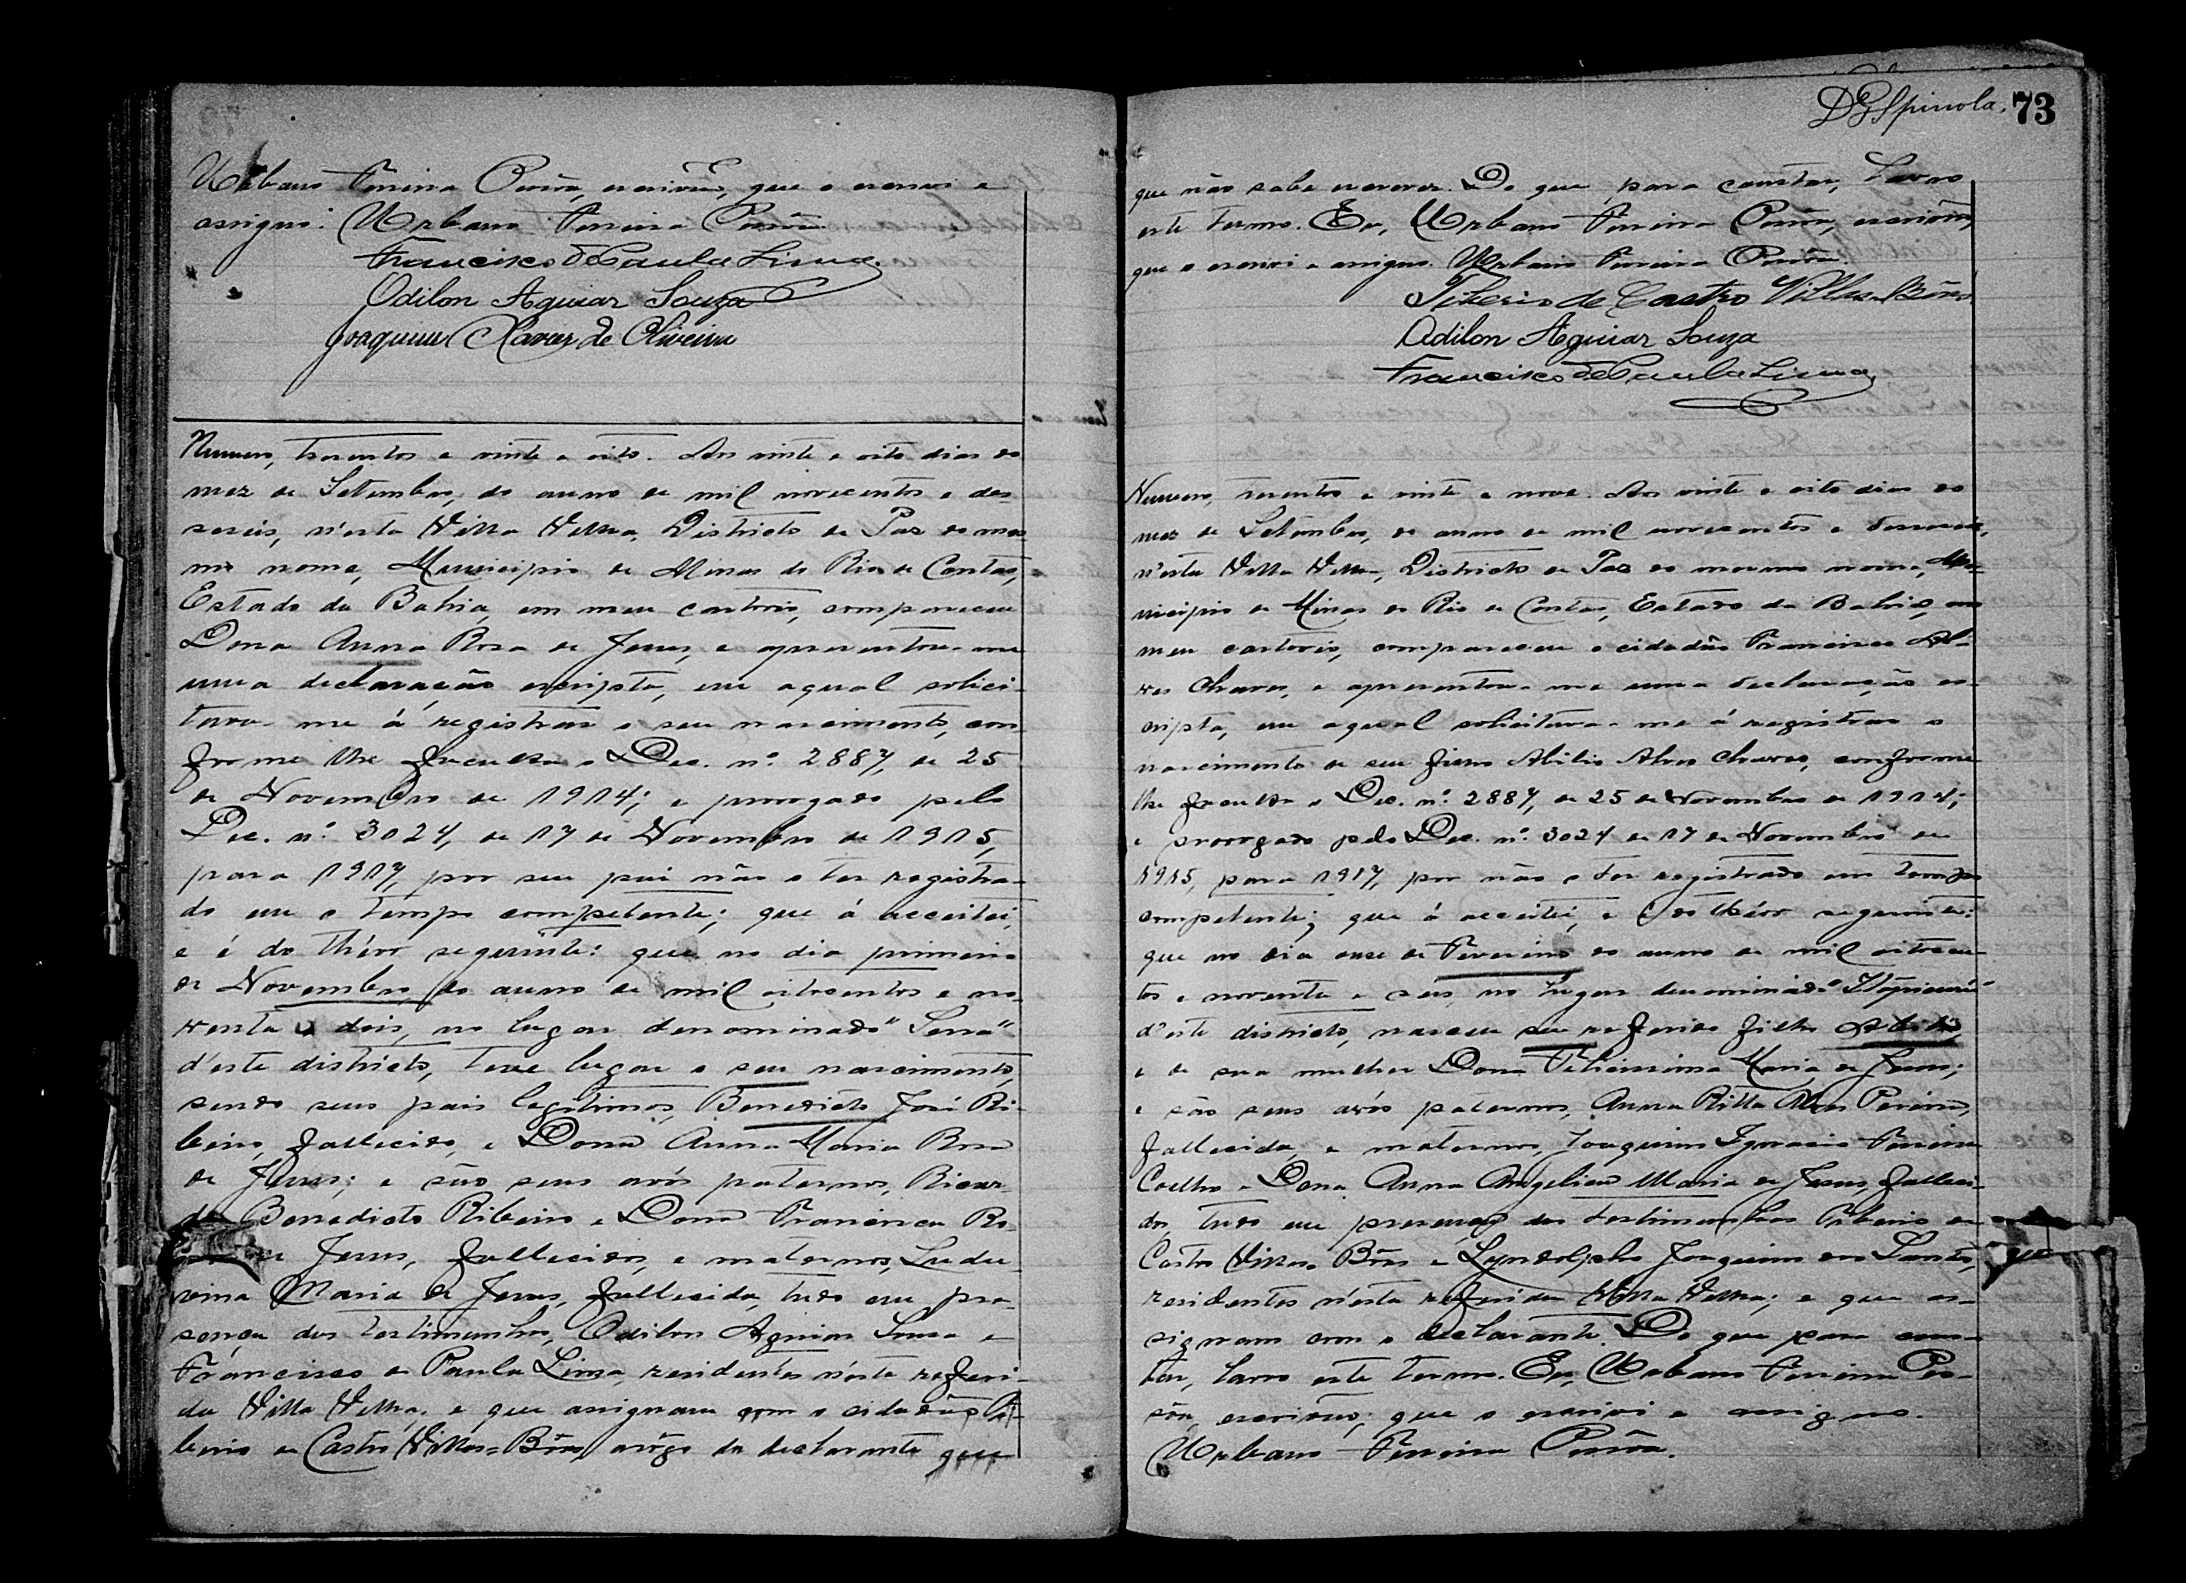 Urbano Ferreira Pessôa, escrivão, que o escrevi e
assigno. Urbano Ferreira Pessôa
Francisco de Paula Lima
Odilon Aguiar Souza
Joaquim Xavier de Oliveira
Numero, tresentos e vinte e oito. Aos vinte e oito dias do
mez de Setembro, do anno de mil novecentos e des
seseis, n'esta Villa Velha, Districto de Paz do mes
mo nome, Municipio de Minas do Rio de Contas,
Estado da Bahia, em meu cartorio, compareceu
Dona Anna Rosa de Jesus, e apresentou-me
uma declaração escripta, em a qual solici-
tava-me á registrar o seu nascimento, con
forme lhe faculta o Dec. nº. 2887, de 25
de Novembro de 1914; e prorogado pelo
Dec. nº. 3024, de 17 de Novembro de 1915,
para 1917, por seu pai não o ter registra-
do em o tempo competente; que á acceitei,
e é do théor seguinte: que no dia primeiro
de Novembro do anno de mil oitocentos e no-
venta e dois, no lugar denominado "Serra"
d'este districto, teve lugar o seu nascimento,
sendo seus pais legitimos, Benedicto José Ri-
beiro, fallecido, e Dona Anna Maria Rosa
de Jesus; e são seus avós paternos, Ricar-
do Benedicto Ribeiro e Dona Francisca Ro-
Jesus, fallecidos, e maternos, Ludu-
vina Maria de Jesus, fallecida, tudo em pre-
sença das testimunhas, Odilon Aguiar Souza e
Francisco de Paula Lima, residentes n'esta referi-
da Villa Velha, e que assignam com o cidadão Ti-
berio de Castro Villas-Bôas, arôgo da declarante que
D G Spinola. 73
que não sabe escrever. Do que, para constar, lavro
este termo. Eu, Urbano Ferreira Pessôa, escrivão,
que o escrevi e assigno. Urbano Ferreira Pessôa.
Tiberio de Castro Villas-Bôas
Odilon Aguiar Souza
Francisco de Paula Lima
Numero, tresentos e vinte e nove. Aos vinte e oito dias do
mez de Setembro, do anno de mil novecentos e desseseis,
n'esta Villa Velha, Districto de Paz do mesmo nome, Mu-
nicipio de Minas do Rio de Contas, Estado da Bahia, em
meu cartorio, compareceu o cidadão Francisco Al-
ves Chaves, e apresentou-me uma declaração es-
cripta, em a qual solicitava-me á registrar o
nascimento de seu filho Abilio Alves Chaves, conforme
lhe faculta o Dec. nº. 2887, de 25 de Novembro de 1914;
e prorogado pelo Dec. nº. 3024 de 17 de Novembro de
1915, para 1917, por não o ter registrado em tempo
competente; que á acceitei, e é do théor seguinte:
que no dia onse de Fevereiro do anno de mil oitocen-
tos e noventa e seis, no lugar denominado "Itapicurú"
d'este districto, nasceu seu referido filho Abilio,
e de sua mulher Dona Felicissima Maria de Jesus;
e são seus avós paternos, Anna Ritta Alves Pereira,
fallecida, e maternos, Joaquim Ignacio Ferreira
Coelho e Dona Anna Angelica Maria de Jesus, falleci-
dos, tudo em presença das testimunhas Tiberio de
Castro Villas Bôas e Lyndolpho Joaquim dos Santos,
residentes n'esta referida Villa Velha; e que as-
signam com o declarante. Do que para cons-
tar, lavro este termo. Eu, Urbano Ferreira Pes-
sôa, escrivão, que o escrevi e assigno.
Urbano Ferreira Pessôa.